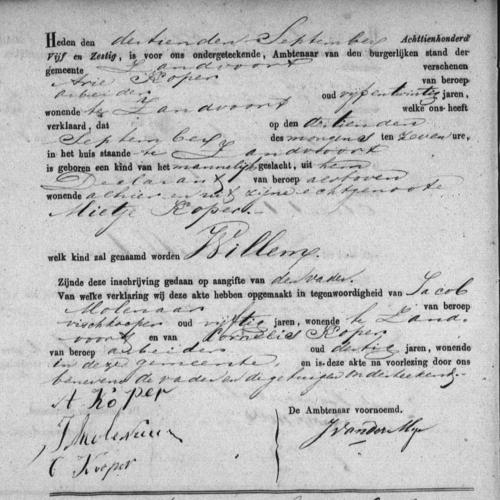 Heden den dertienden September Achttienhonderd
Vijf en Zestig, is voor ons ondergeteekende, Ambtenaar van den burgerlijken stand der
gemeente Zandvoort verschenen
Arie Koper van beroep
arbeider oud vijfentwintig jaren,
wonende te Zandvoort welke ons heeft
verklaard, dat op den dertienden
September des morgens ten zeven ure,
in het huis staande te Zandvoort
is geboren een kind van het mannelijk geslacht, uit hem
Declarant van beroep alsboven
wonende alhier en uit zijne echtgenoote
Mietje Koper.
welk kind zal genaamd worden Willem.
Zijnde deze inschrijving gedaan op aangifte van den vader.
Van welke verklaring wij deze akte hebben opgemaakt in tegenwoordigheid van Jacob
Molenaar van beroep
vischkooper oud vijftig jaren, wonende te Zand-
voort en van Cornelis Koper
van beroep arbeider oud dertig jaren, wonende
in deze gemeente, en is deze akte na voorlezing door ons
benevens de vader en de getuigen onderteekend.
A Koper
De Ambtenaar voornoemd.
J Molenaar
C Kooper